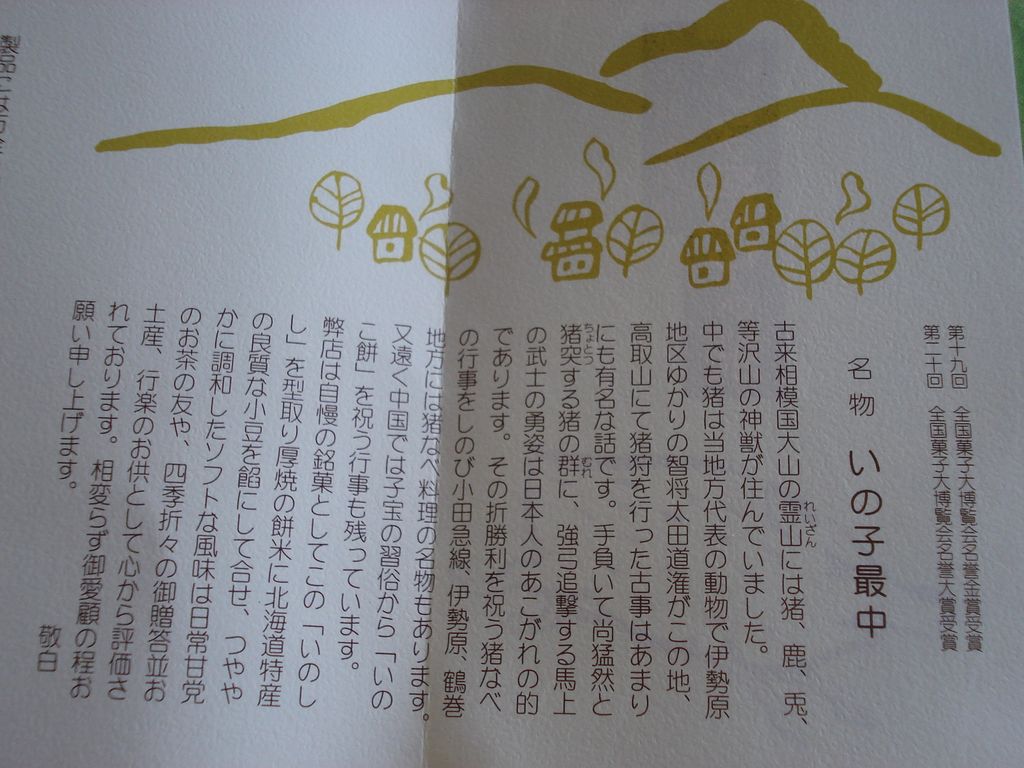 第十九回 全国菓子大博覧会名誉金賞受賞
第二十回 全国菓子大博覧会名誉大賞受賞
名物 いの子最中
古来相模国大山の霊山には猪、鹿、兎、
れいざん
等沢山の神獣が住んでいました。
中でも猪は当地方代表の動物で伊勢原
地区ゆかりの智将太田道潅がこの地、
高取山にて猪狩を行った古事はあまり
にも有名な話です。手負いて尚猛然と
猪突する猪の群に、強弓追撃する馬上
ちょとつ むれ
の武士の勇姿は日本人のあこがれの的
であります。その折勝利を祝う猪なべ
の行事をしのび小田急線、伊勢原、鶴巻
地方には猪なべ料理の名物もあります。
又遠く中国では子宝の習俗から「いの
こ餅」を祝う行事も残っています。
弊店は自慢の銘菓としてこの「いのし
し」を型取り厚焼の餅米に北海道特産
の良質な小豆を餡にして合せ、つやや
かに調和したソフトな風味は日常甘党
のお茶の友や、四季折々の御贈答並お
土産、行楽のお供として心から評価さ
れております。相変らず御愛顧の程お
願い申し上げます。
敬白
製品には万全